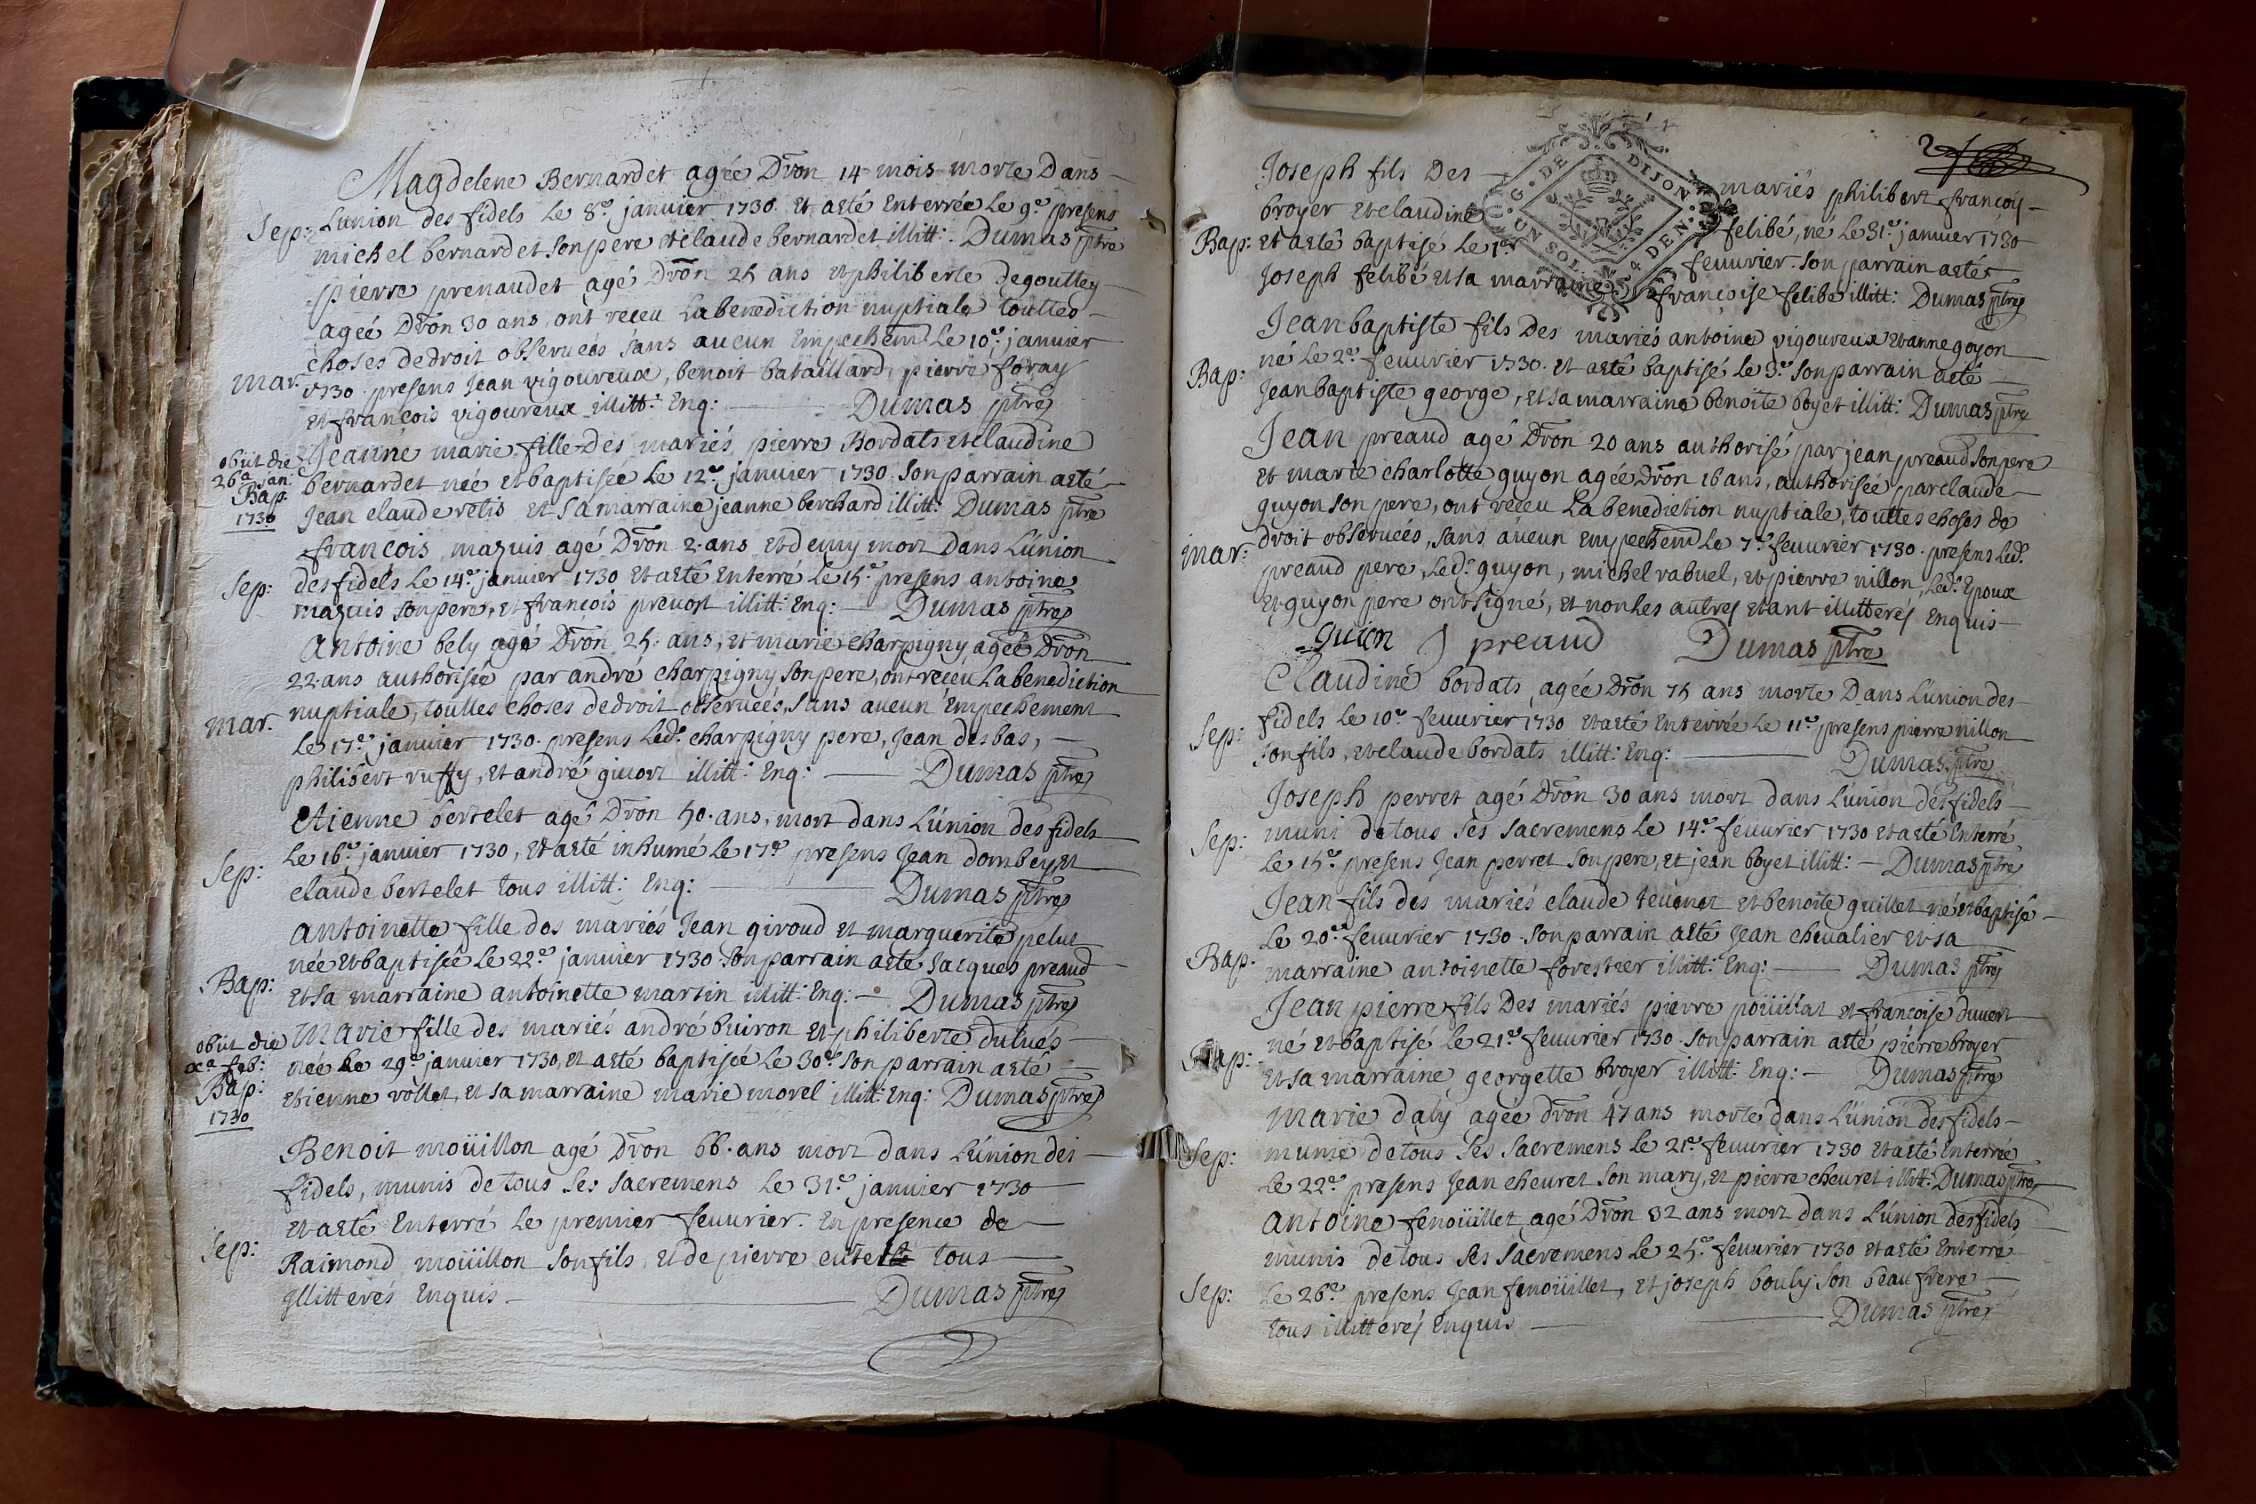 Magdelene Bernardet agée Dron 14 mois morte Dans
Sep: L'union des fidels Le 8e janvier 1730 et aeté Enterrée Le 9e presens
michel bernardet son pere et claude bernardet illitt: Dumas ptre
pierre prenaudet agé Dron 25 ans et philiberte degouttey
agée Dron 30 ans, ont receu La benediction nuptiale touttes
choses de droit observées sans aucun Empechem Le 10e janvier
mar. 1730. presens Jean vigoureux, benoit bataillard, pierre foray
et françois vigoureux illitt: Enq: Dumas ptre
obiit die 26a jan. Jeanne marie fille des mariés pierre Bordats et claudine
Bap: bernardet née et baptisée Le 12e janvier 1730 Son parrain aeté
1730 Jean claude retis et Sa marraine jeanne berchard illitt: Dumas ptre
françois mazuis agé Dron 2. ans et demy mort Dans L'union
Sep: des fidels Le 14e janvier 1730 et aeté Enterré Le 15e presens antoine
mazuis son pere, et françois prevost illitt: Enq: Dumas ptre
Antoine bely agé Dron 25. ans, et marie charpigny agée Dron
22. ans authorisée par andré charpigny son pere, ont receu La benediction
mar. nuptiale, touttes choses de droit observées, Sans aucun Empechement
Le 17e janvier 1730. presens Led. charpigny pere, Jean desbas,
philibert ruffy, et andré givort illitt: Enq: Dumas ptre
Etienne bertelet agé Dron 50. ans, mort dans L'union des fidels
Sep: Le 16e janvier 1730, et aeté inhumé Le 17e presens Jean dombey et
claude bertelet tous illitt: Enq: Dumas ptre
Antoinette fille des mariés Jean giroud et marguerite pelut
née et baptisée Le 22e janvier 1730 Son parrain aeté Jacques preaud
Bap: et sa marraine antoinette martin illitt: Enq: Dumas ptre
obiit die Marie fille des mariés andré buiron et philiberte dulués
xa feb: née Le 29e janvier 1730, et aeté baptisée Le 30e Son parrain aeté
Bap: etienne vollet, et sa marraine marie morel illitt: Enq: Dumas ptre
1730
Benoit moüillon agé Dron 66. ans mort dans L'union des
fidels, munis de tous Ses Sacremens Le 31e janvier 1730
et aeté Enterré Le premier fevvrier. En presence de
Sep: Raimond moüillon Son fils, et de pierre tous
Illitterés Enquis Dumas ptre
2
G. DE DIJON.
UN SOL. 4 DEN.
Joseph fils Des mariés philibert françoy
broyer et claudine felibé, né Le 31e janvier 1730
Bap: et aeté baptisé Le 1er fevvrier. Son parrain aeté
Joseph felibé et sa marraine françoise felibé illitt: Dumas ptre
Jean baptiste fils Des mariés antoine vigoureux et anne goyon
né Le 2e fevvrier 1730. et aeté baptisé Le 3e Son parrain aeté
Bap: Jean baptiste george, et sa marraine benoite boyet illitt: Dumas ptre
Jean preaud agé Dron 20 ans authorisé par jean preaud Son pere
et marie charlotte guyon agée Dron 16 ans, authorisée par claude
guyon son pere, ont receu La benediction nuptiale, touttes choses de
mar: droit observées, Sans aucun Empechem Le 7e fevvrier 1730. presens Led.
preaud pere, Led. guyon, michel rabuel, et pierre nillon, Led. Epoux
Et guyon pere ont signé, et non Les autres etant illitterés Enquis
guion J preaud Dumas ptre
Claudine bordats agée Dron 75 ans morte Dans L'union des
Sep: fidels Le 10e fevvrier 1730 et aeté Enterrée Le 11e presens pierre nillon
Son fils, et claude bordats illitt: Enq: Dumas ptre
Joseph perret agé Dron 30 ans mort dans L'union des fidels
Sep: muni de tous Ses Sacremens Le 14e fevvrier 1730 et aeté Enterré
Le 15e presens Jean perret Son pere, et jean boyet illitt: Dumas ptre
Jean fils des mariés claude tevenet et benoite guillet né et baptisé
Le 20e fevvrier 1730. Son parrain aeté Jean chevalier et sa
Bap. marraine antoinette forestier illitt: Enq: Dumas ptre
Jean pierre fils Des mariés pierre poüillat et françoise duvert
né et baptisé Le 21e fevvrier 1730. Son parrain aeté pierre broyer
Bap: et sa marraine georgette broyer illitt: Enq: Dumas ptre
Marie daly agée Dron 47 ans morte dans L'union des fidels
Sep: munie de tous Ses Sacremens Le 21e fevvrier 1730 et aeté Enterrée
Le 22e presens Jean chevret Son mary, et pierre chevret illitt: Dumas ptre
Antoine fenoüillet agé Dron 32 ans mort dans L'union des fidels
munis de tous Ses Sacremens Le 25e fevvrier 1730 et aeté Enterré
Sep: Le 26e presens Jean fenoüillet, et joseph bouly Son beau frere
tous illitterés Enquis Dumas ptre